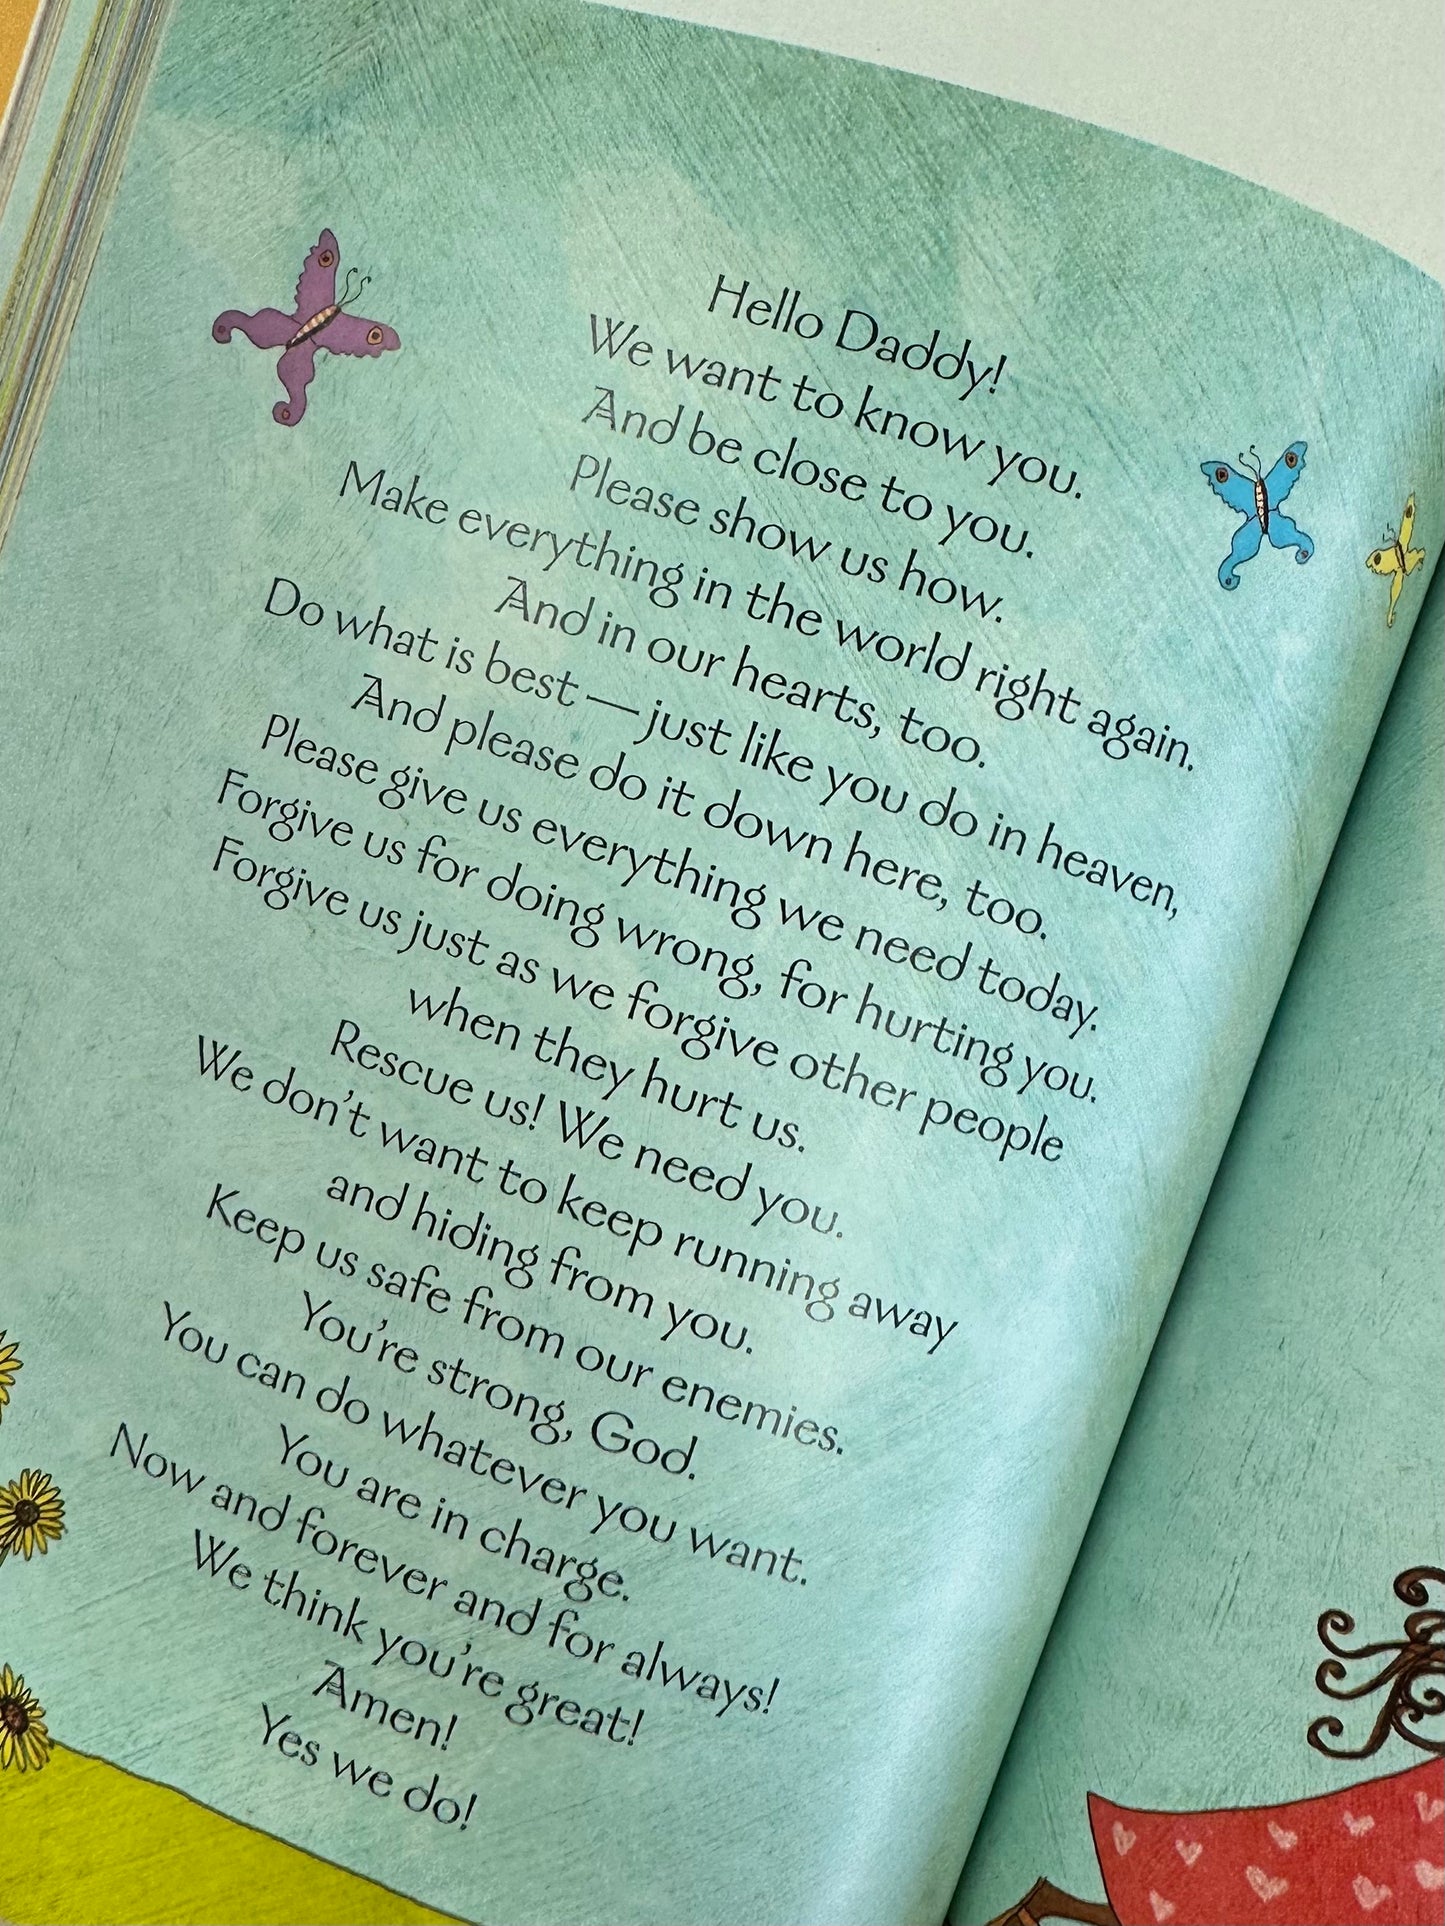 Hello Daddy!
We want to know you.
And be close to you.
Please show us how.
Make everything in the world right again.
And in our hearts, too.
Do what is best — just like you do in heaven,
And please do it down here, too.
Please give us everything we need today.
Forgive us for doing wrong, for hurting you.
Forgive us just as we forgive other people
when they hurt us.
Rescue us! We need you.
We don't want to keep running away
and hiding from you.
Keep us safe from our enemies.
You're strong, God.
You can do whatever you want.
You are in charge.
Now and forever and for always!
We think you're great!
Amen!
Yes we do!